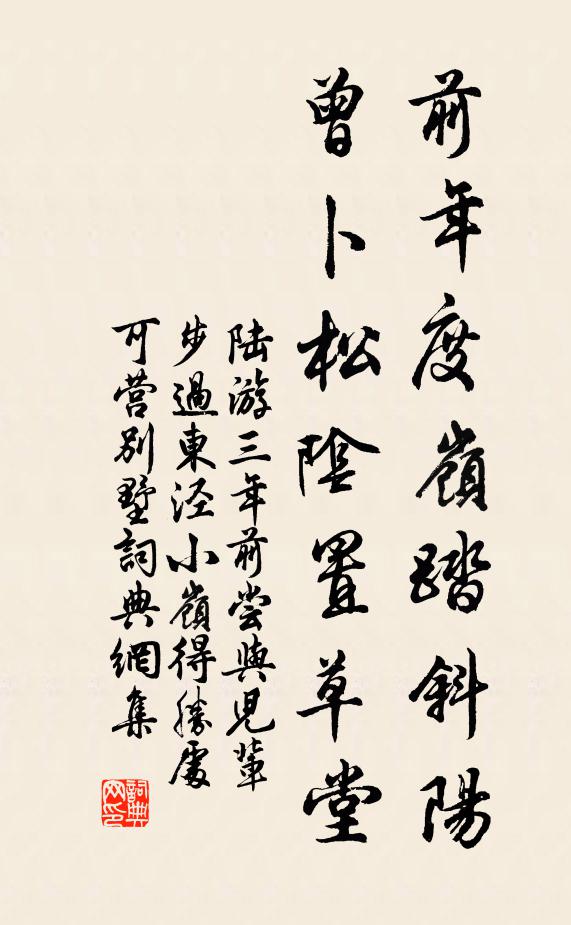 前年度嶺踏斜陽
曾卜松陰置草堂
陆游三年前尝與児輩
步過東泾小嶺得勝處
可营別墅詞典網集
詞典
网印